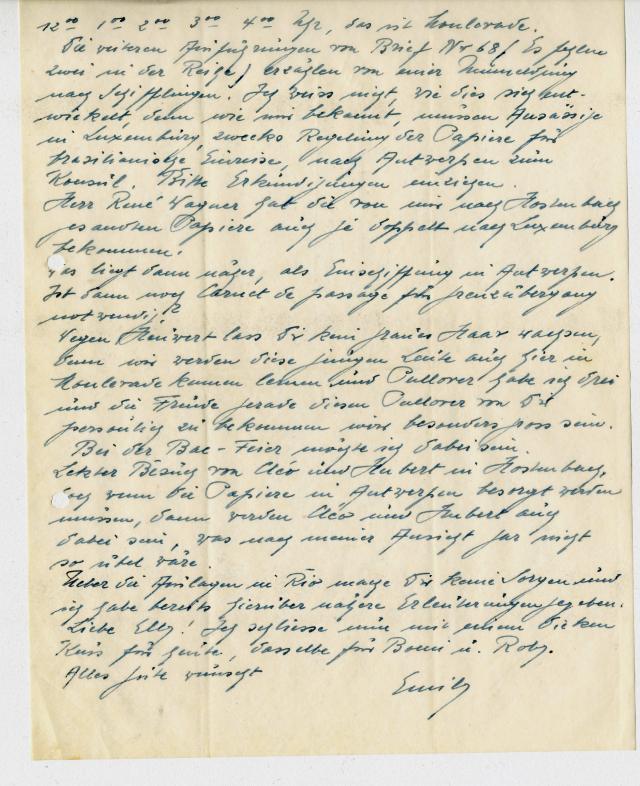 12⁰⁰ 1⁰⁰ 2⁰⁰ 3⁰⁰ 4⁰⁰ Uhr, das ist Monlevade.
Die weiteren Ausführungen von Brief Nr 68 (Es fehlen
zwei in der Reihe) erzählen von einer
nach Schifflingen. Ich weiss nicht, wie dies sich ent-
wickelt denn wie mir bekannt, müssen Ansässige
in Luxemburg, zwecks Regelung der Papiere für
brasilianische Einreise, nach Antwerpen zum
Konsul. Bitte Erkündigungen einziehen.
Herr René Wagner hat die von mir nach Hostenbach
gesandten Papiere auch je doppelt nach Luxemburg
bekommen.
Was liegt dann näher, als Einschiffung in Antwerpen.
Ist dann noch Carnet de passage für Grenzübergang
notwendig?
Wegen lass dir kein graues Haar wachsen,
denn wir werden diese jungen Leute auch hier in
Monlevade kennen lernen und Pullover habe ich drei
und die Freude gerade diesen Pullover von dir
persönlich zu bekommen wird besonders gross sein.
Bei der Bac-Feier möchte ich dabei sein.
Letzter Besuch von Cleo und Hubert in Hostenbach,
doch wenn die Papiere in Antwerpen besorgt werden
müssen, dann werden Cleo und Hubert auch
dabei sein, was nach meiner Ansicht gar nicht
so übel wäre.
Ueber die Auslagen in Rio mache dir keine Sorgen und
ich habe bereits hierüber nähere Erläuterungen gegeben.
Liebe Elly! Ich schliesse nun mit einem dicken
Kuss für heute, dasselbe für u. Roby.
Alles Gute wünscht
Emil